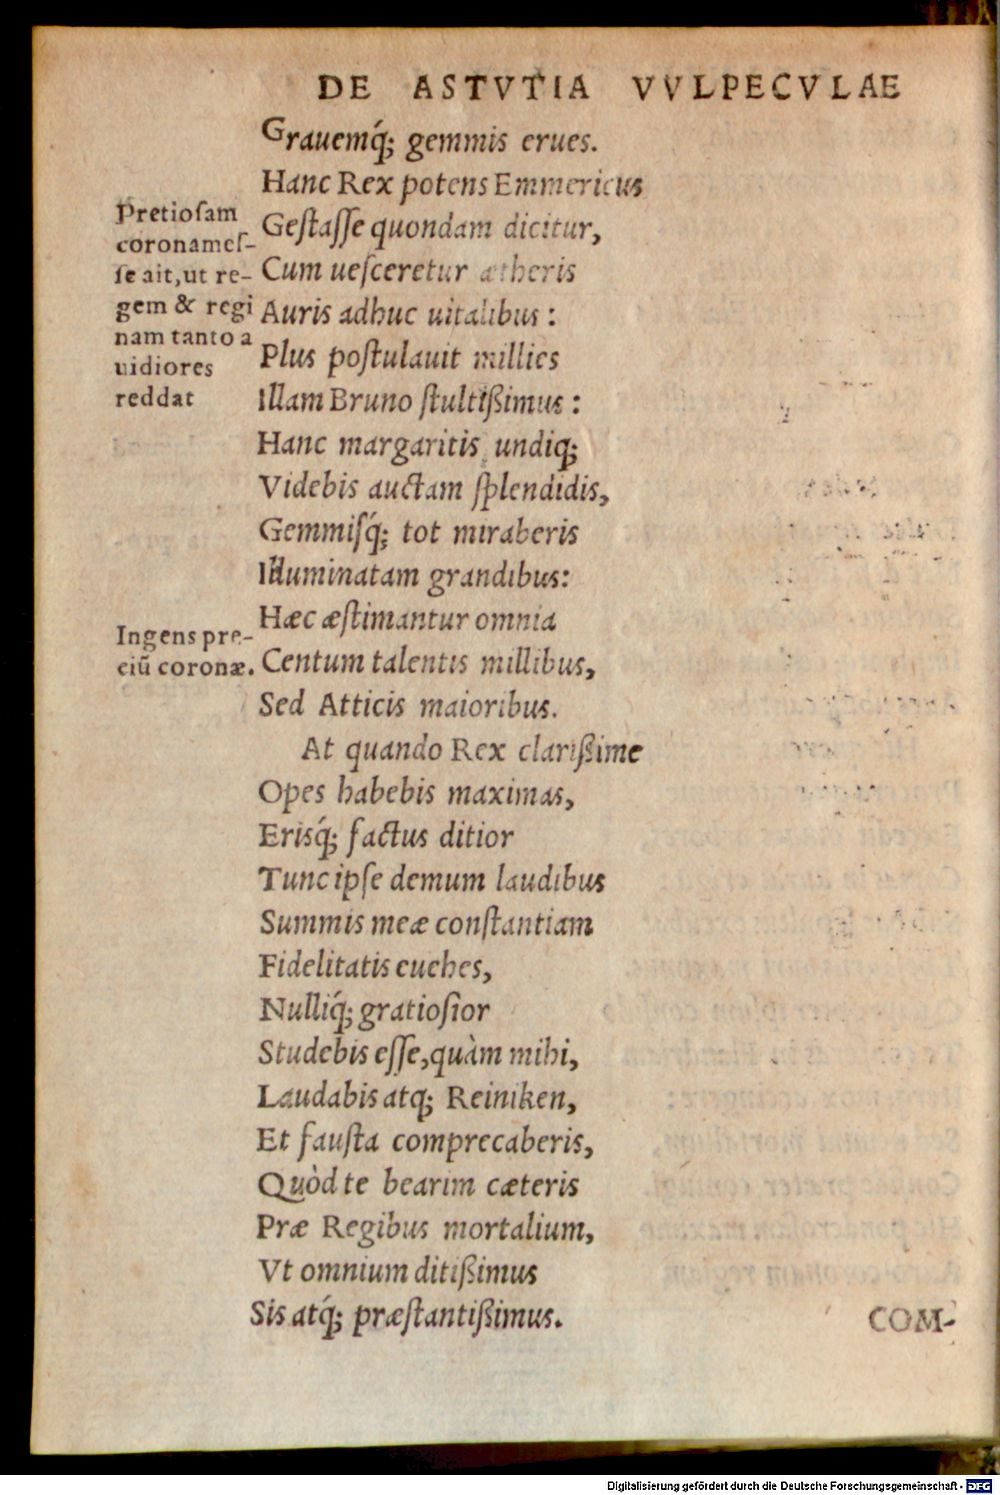 DE ASTVTIA VVLPECVLAE
Grauemq́; gemmis erues.
Hanc Rex potens Emmericus
Geſtaſſe quondam dicitur,
Cum ueſceretur ætheris
Auris adhuc uitalibus :
Plus poſtulauit millies
Illam Bruno ſtultißimus :
Hanc margaritis undiq;
Videbis auctam ſplendidis,
Gemmiſq́; tot miraberis
Illuminatam grandibus:
Hæc æſtimantur omnia
Centum talentis millibus,
Sed Atticis maioribus.
At quando Rex clarißime
Opes habebis maximas,
Erisq́; factus ditior
Tunc ipſe demum laudibus
Summis meæ conſtantiam
Fidelitatis euehes,
Nulliq́; gratioſior
Studebis eſſe, quàm mihi,
Laudabis atq; Reiniken,
Et fauſta comprecaberis,
Quòd te bearim cæteris
Præ Regibus mortalium,
Vt omnium ditißimus
Sis atq́; præſtantißimus.
Pretioſam
coronameſ-
ſe ait, ut re-
gem & regi
nam tanto a
uidiores
reddat
Ingens pre-
ciũ coronæ.
COM-
Digitalisierung gefördert durch die Deutsche Forschungsgemeinschaft - DFG